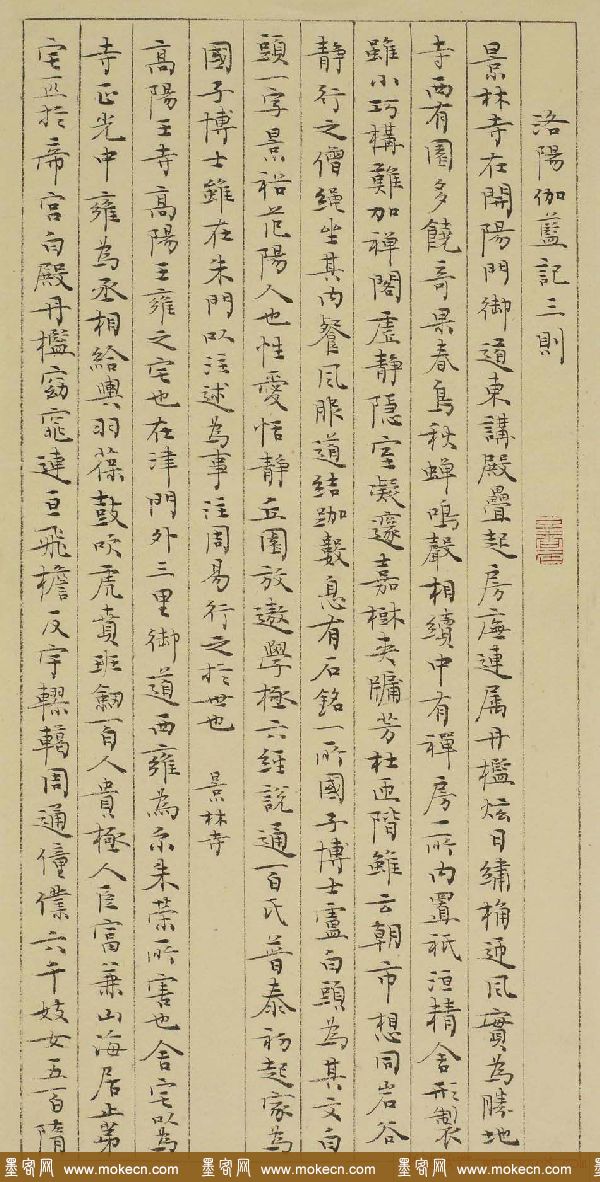 洛陽伽藍記三則
景林寺在開陽門御道東講殿疊起房廡連属丹檻炫日繡桷迎風實為勝地
寺西有園多饒奇果春鳥秋蟬鳴聲相續中有禪房一所内置祇洹精舍形製
雖小巧構難加禅閣虛静隐室凝邃嘉樹夾牖芳杜匝階雖云朝市想同岩谷
静行之僧繩坐其内餐風服道結跏數息有石銘一所國子博士盧白頭為其文白
頭一字景裕范陽人也性愛恬静丘園放遨學極六經説通百氏普泰初起家為
國子博士雖在朱門以注述為事注周易行之於世也 景林寺
高陽王寺高陽王雍之宅也在津門外三里御道西雍為尔朱榮所害也舍宅以為
寺正光中雍為丞相給輿羽葆鼓吹虎賁班劍百人貴極人臣富兼山海居止第
宅匹於帝宫白殿丹檻窈窕連亘飛檐反宇轇轕周通僮僕六千妓女五百隋
墨客网 www.mokecn.com 墨客网 www.mokecn.com 墨客网 www.mokecn.com